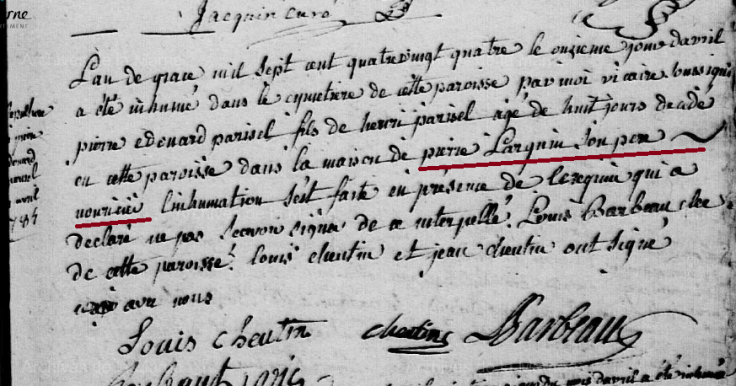 rne
Jacquin curé
L'an de grace mil sept cent quatrevingt quatre le onzieme jour davril
a été inhumé dans le cymetiere de cette paroisse par moi vicaire soussigné
pierre edouard parisel fils de henri parisel agé de huit jours decedé
en cette paroisse dans la maison de pierre Larquin son pere
nouricié l'inhumation s'est faite en présence de Lerquin qui a
declaré ne pas scavoir signer de ce interpellé. Louis Barbeau clerc
de cette paroisse. Louis cheutin et jean cheutin ont signé
avec nous
Louis Cheutin cheutin LBarbeau